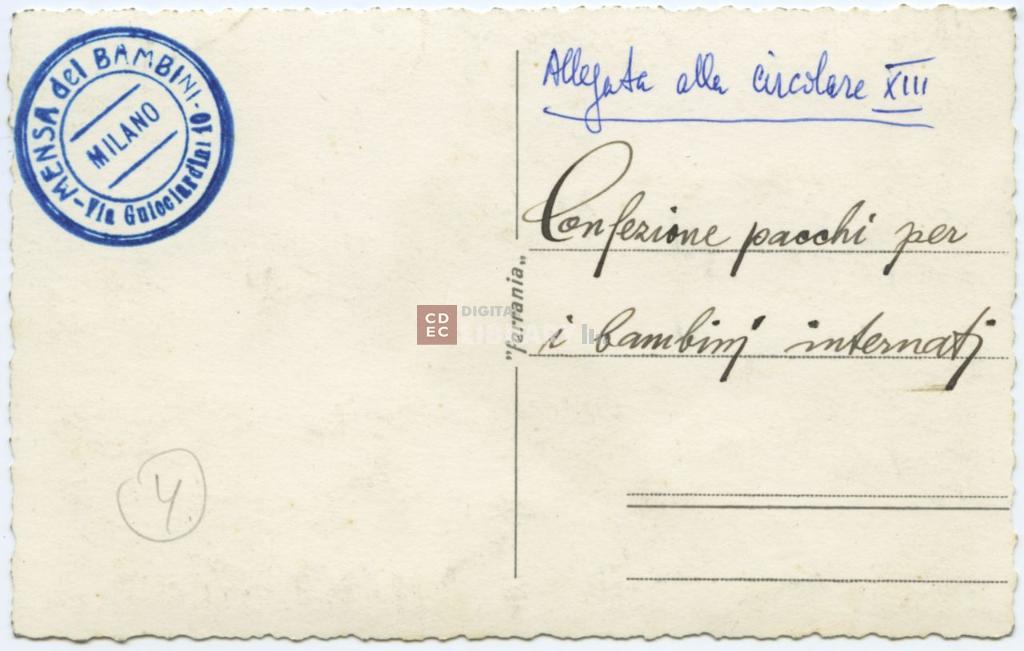 MENSA dei BAMBINI - Via Guicciardini 10
MILANO
Allegata alla circolare XIII
Confezione pacchi per
i bambini internati
"ferrania"
CD
EC
DIGITAL
LIBRARY
4.